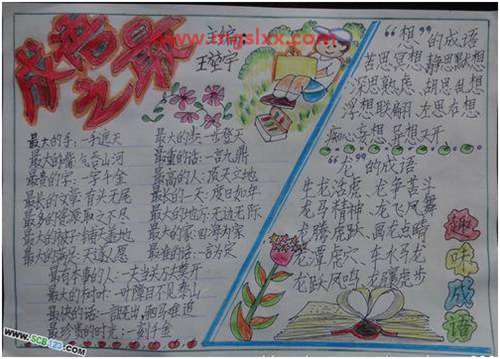 www.mgslxx.com
成语之最
最大的手：一手遮天
最大的嘴：气吞山河
最贵的字：一字千金
最长的文章：有头无尾
最多的资源：取之不尽
最大的被子：铺天盖地
最大的满足：天遂人愿
最有本事的人：一夫当关万夫莫开
最大的树叶：一叶障目不见泰山
最快的话：一言既出驷马难追
最珍贵的时光：一刻千金
最大的步：一步登天
最重的话：一言九鼎
最高的人：顶天立地
最长的一天：度日如年
最大的地方：无边无际
最大的家：四海为家
最准的话：一言为定
“想”的成语
苦思冥想 静思默想
深思熟虑 胡思乱想
浮想联翩 左思右想
痴心妄想 异想天开
“龙”的成语
生龙活虎 龙争虎斗
龙马精神 龙飞凤舞
龙腾虎跃 画龙点睛
龙潭虎穴 车水马龙
龙跃凤鸣 龙骧虎步
趣味成语
WWW.SCB123.COM